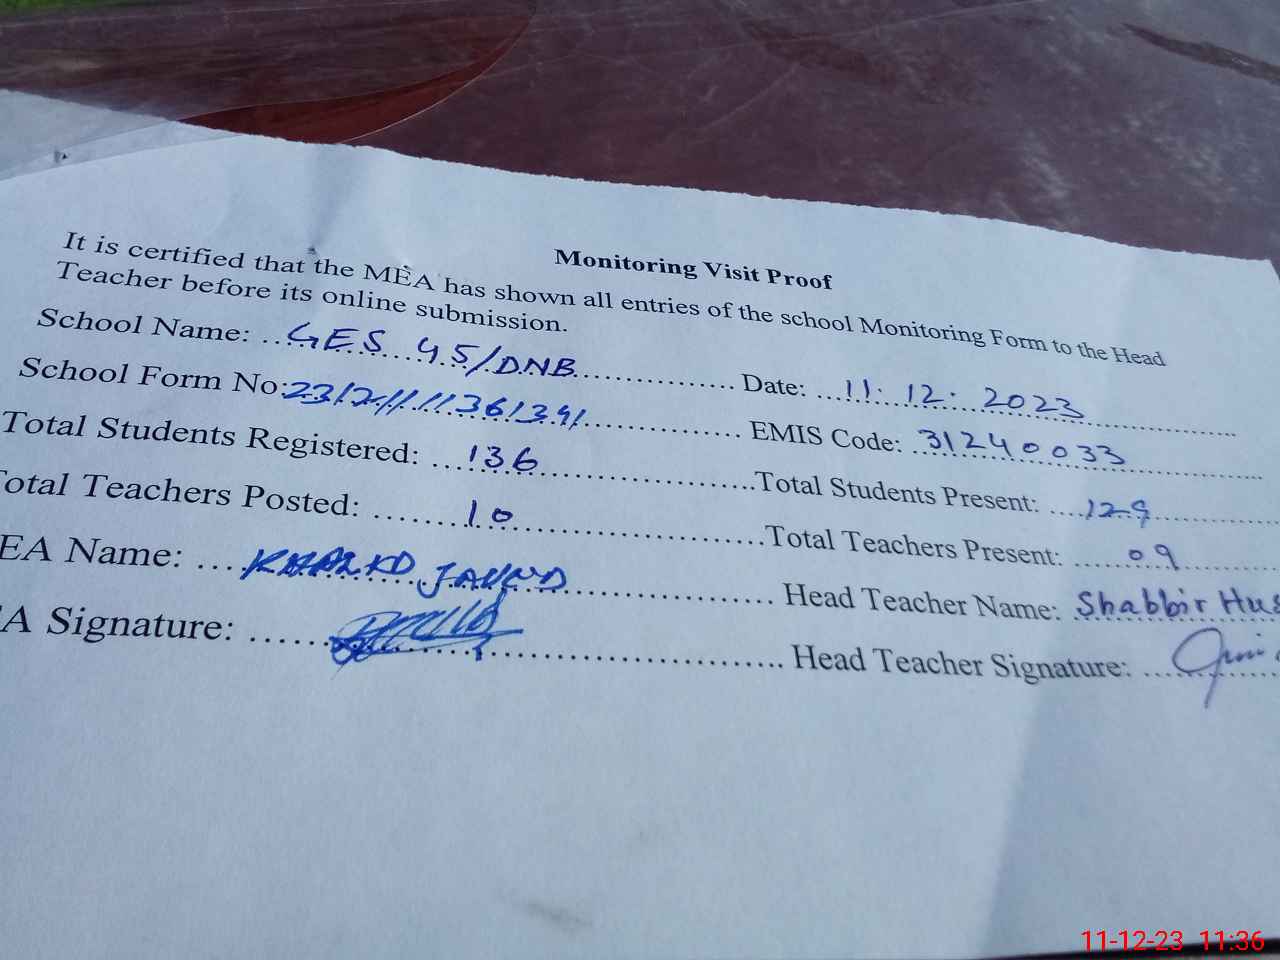 Monitoring Visit Proof
It is certified that the MEA has shown all entries of the school Monitoring Form to the Head
Teacher before its online submission.
School Name: GES 45/DNB Date: 11.12.2023
School Form No: EMIS Code: 31240033
Total Students Registered: 136 Total Students Present: 129
otal Teachers Posted: 10 Total Teachers Present: 09
EA Name: Head Teacher Name: Shabbir Hus
A Signature: Head Teacher Signature:
11-12-23 11:36